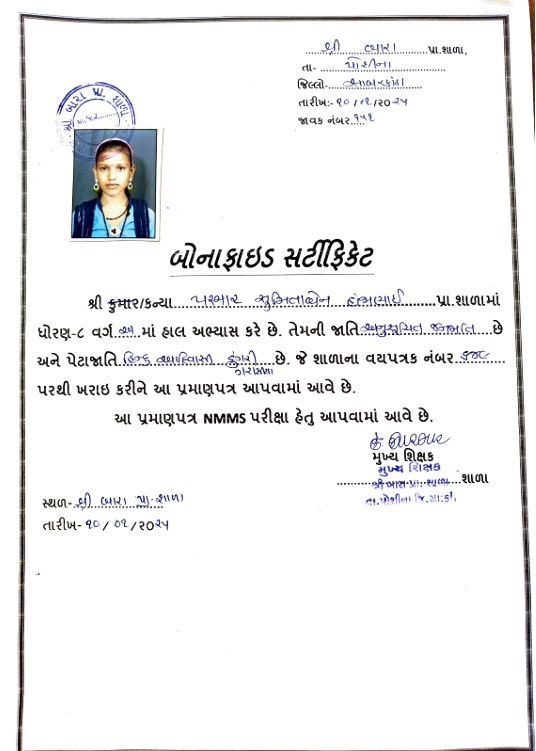 શ્રી બારા પ્રા.શાળા,
તા- પોશીના
જિલ્લો- સાબરકાંઠા
તારીખ:- ૧૦/૦૨/૨૦૨૫
જાવક નંબર
શ્રી બારા પ્રા. શાળા
બોનાફાઇડ સર્ટીફિકેટ
શ્રી કુમાર/કન્યા પરમાર સુમિતાબેન પ્રા.શાળામાં
ધોરણ-૮ વર્ગ અ માં હાલ અભ્યાસ કરે છે. તેમની જાતિ અનુસૂચિત જનજાતિ છે
અને પેટાજાતિ હિન્દુ આદિવાસી ડુંગરી છે. જે શાળાના વયપત્રક નંબર
ગરાસીયા
પરથી ખરાઇ કરીને આ પ્રમાણપત્ર આપવામાં આવે છે.
આ પ્રમાણપત્ર NMMS પરીક્ષા હેતુ આપવામાં આવે છે.
મુખ્ય શિક્ષક
મુખ્ય શિક્ષક
શ્રી બારા પ્રા. શાળા શાળા
તા.પોશીના જિ.સા.કાં.
સ્થળ- શ્રી બારા પ્રા. શાળા
તારીખ- ૧૦/૦૨/૨૦૨૫